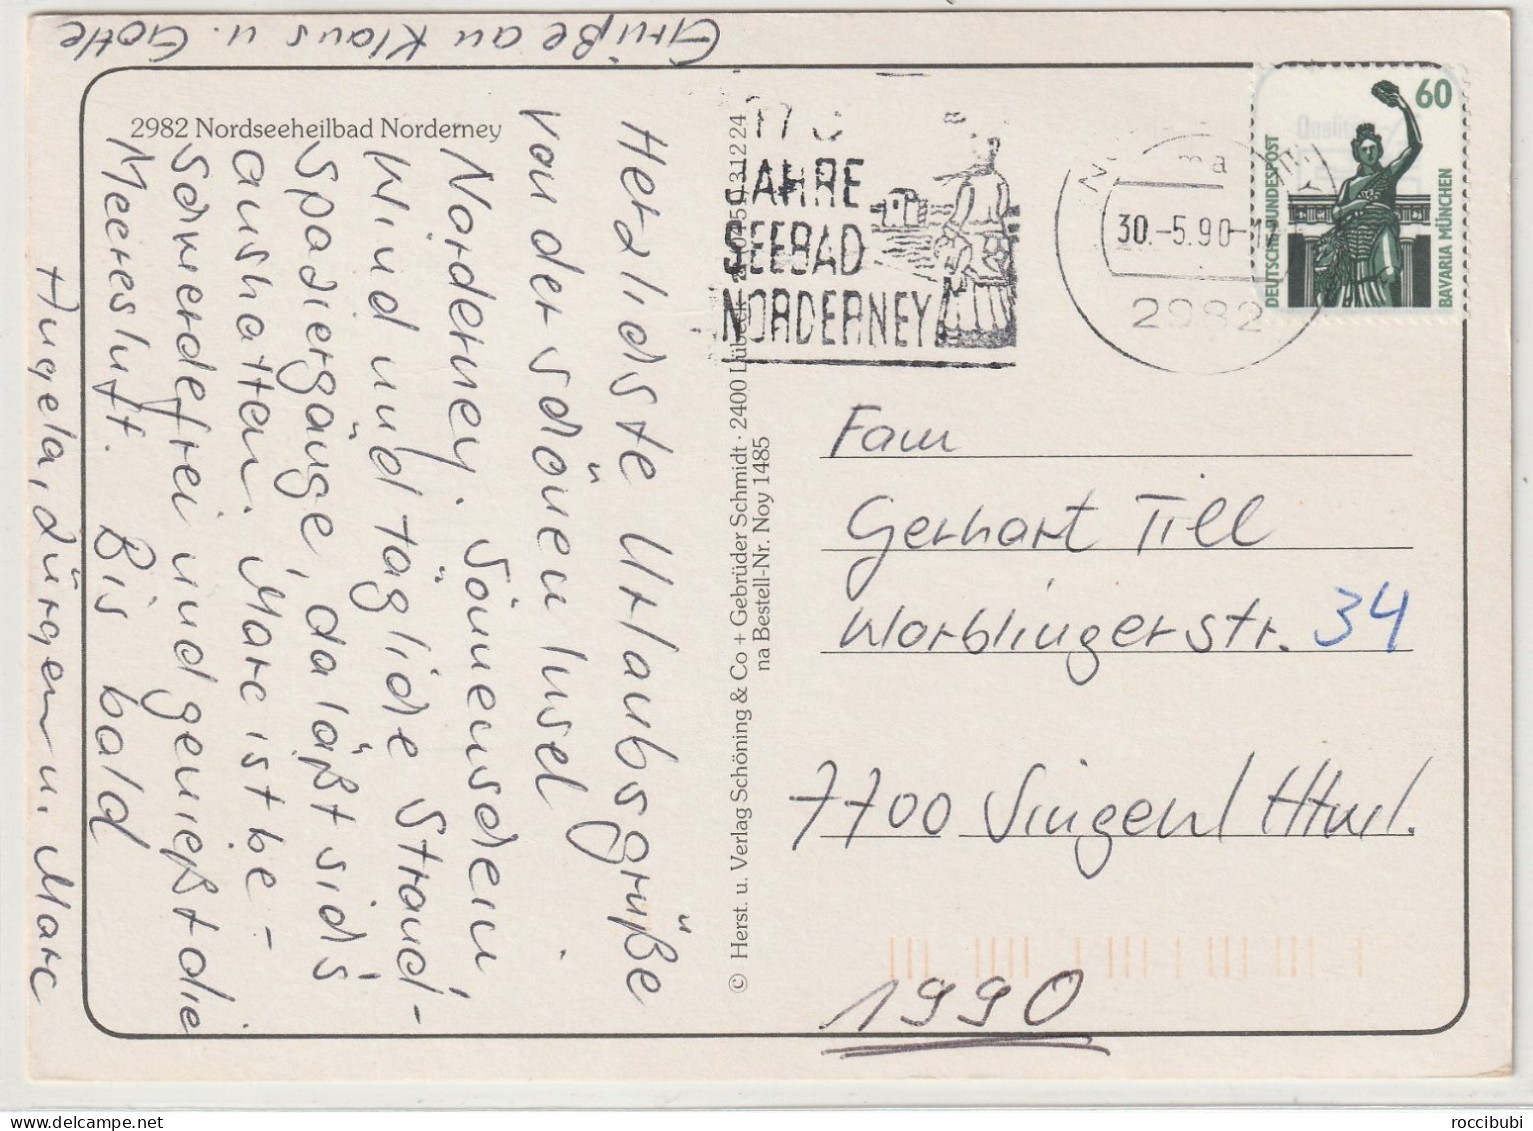 Grüße an Klaus u. Gotte
2982 Nordseeheilbad Norderney
Herzlichste Urlaubsgrüße
von der schönen Insel
Norderney. Sonnenschein
Wind und tägliche Strand-
Spaziergänge, da läßt sich's
aushalten. Marc ist be-
schwerdefrei und genießt die
Meeresluft. Bis bald
Angela, Jürgen u. Marc
© Herst. u. Verlag Schöning & Co + Gebrüder Schmidt · 2400 Lübeck
na Bestell-Nr. Noy 1485
JAHRE
SEEBAD
NORDERNEY
30.-5.90-17
2982
60
DEUTSCHE BUNDESPOST
BAVARIA MÜNCHEN
Fam
Gerhart Till
Worblingerstr. 34
7700 Singen/Htwl.
1990
roccibubi